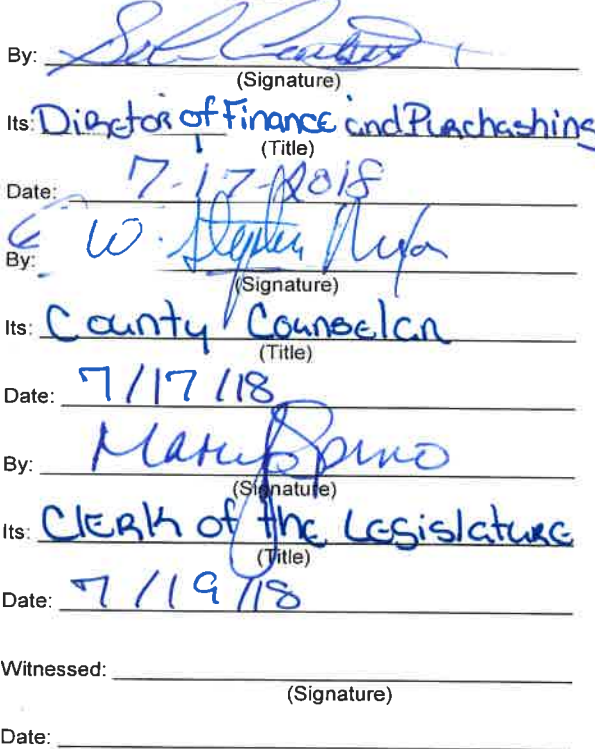 By:
(Signature)
Its: Director of Finance and Purchashing
(Title)
Date: 7-17-2018
By: W. Stephen Nixon
(Signature)
Its: County Counselor
(Title)
Date: 7/17/18
By: Mary Jo Spino
(Signature)
Its: Clerk of the Legislature
(Title)
Date: 7/19/18
Witnessed:
(Signature)
Date: